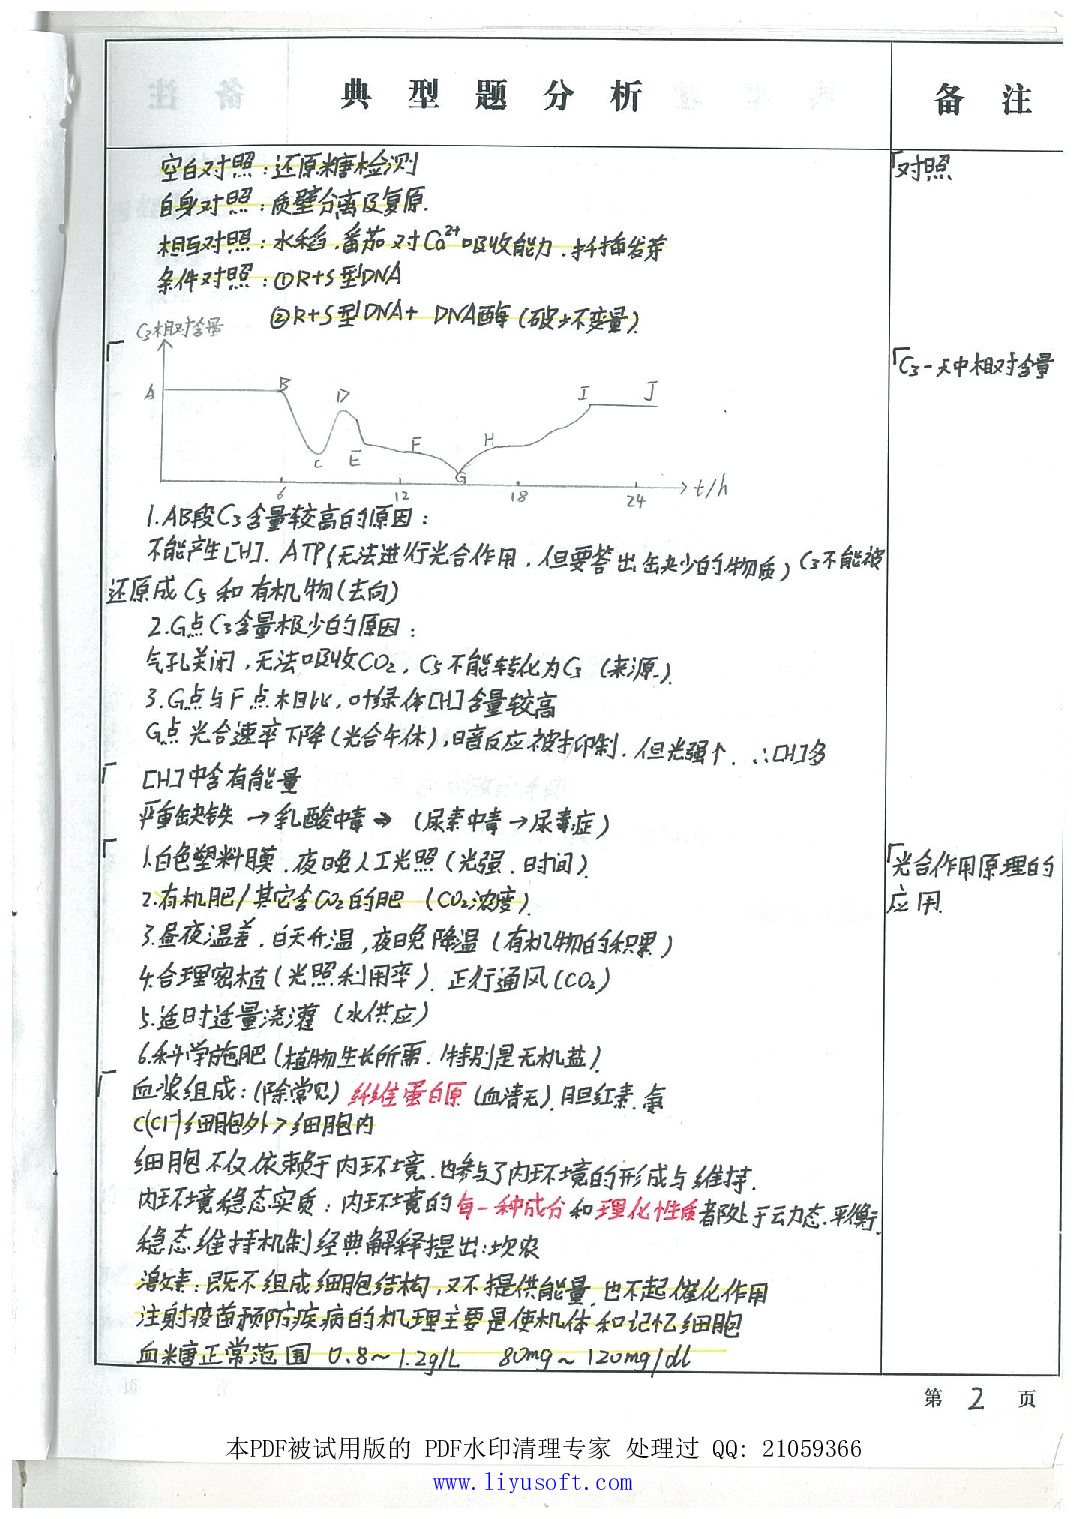 典型题分析
备注
空白对照：还原糖检测
「对照
自身对照：质壁分离及复原.
相互对照：水稻.番茄对Ca²⁺吸收能力.扦插发芽
条件对照：①R+S型DNA
②R+S型DNA+ DNA酶(破坏变量)
C₃相对含量
「C₃一天中相对含量
A
B
C
D
E
F
G
H
I
J
6
12
18
24
t/h
1.AB段C₃含量较高的原因：
不能产生[H]. ATP(无法进行光合作用，但要答出缺少的物质) C₃不能被
还原成C₅和有机物(去向)
2.G点C₃含量极少的原因：
气孔关闭,无法吸收CO₂, C₅不能转化为C₃ (来源)
3.G点与F点相比,叶绿体[H]含量较高
G点光合速率下降(光合午休),暗反应被抑制.但光强个.∴[H]多
[H]中含有能量
严重缺铁→乳酸中毒→ (尿素中毒→尿毒症)
1.白色塑料膜.夜晚人工光照(光强.时间)
「光合作用原理的
应用.
2.有机肥/其它含CO₂的肥 (CO₂浓度)
3.昼夜温差.白天升温,夜晚降温(有机物的积累)
4.合理密植(光照利用率).正行通风(CO₂)
5.适时适量浇灌 (水供应)
6.科学施肥(植物生长所需.特别是无机盐)
血浆组成:(除常见)纤维蛋白原(血清无).胆红素.氨
C(Cl⁻)细胞外>细胞内
细胞不仅依赖于内环境.也参与了内环境的形成与维持.
内环境稳态实质：内环境的每一种成分和理化性质都处于动态平衡.
稳态维持机制经典解释提出:坎农
激素:既不组成细胞结构,又不提供能量.也不起催化作用
注射疫苗预防疾病的机理主要是使机体和记忆细胞
血糖正常范围 0.8~1.2g/L 80mg~120mg/dl
第 2 页
本PDF被试用版的 PDF水印清理专家 处理过 QQ: 21059366
www.liyusoft.com